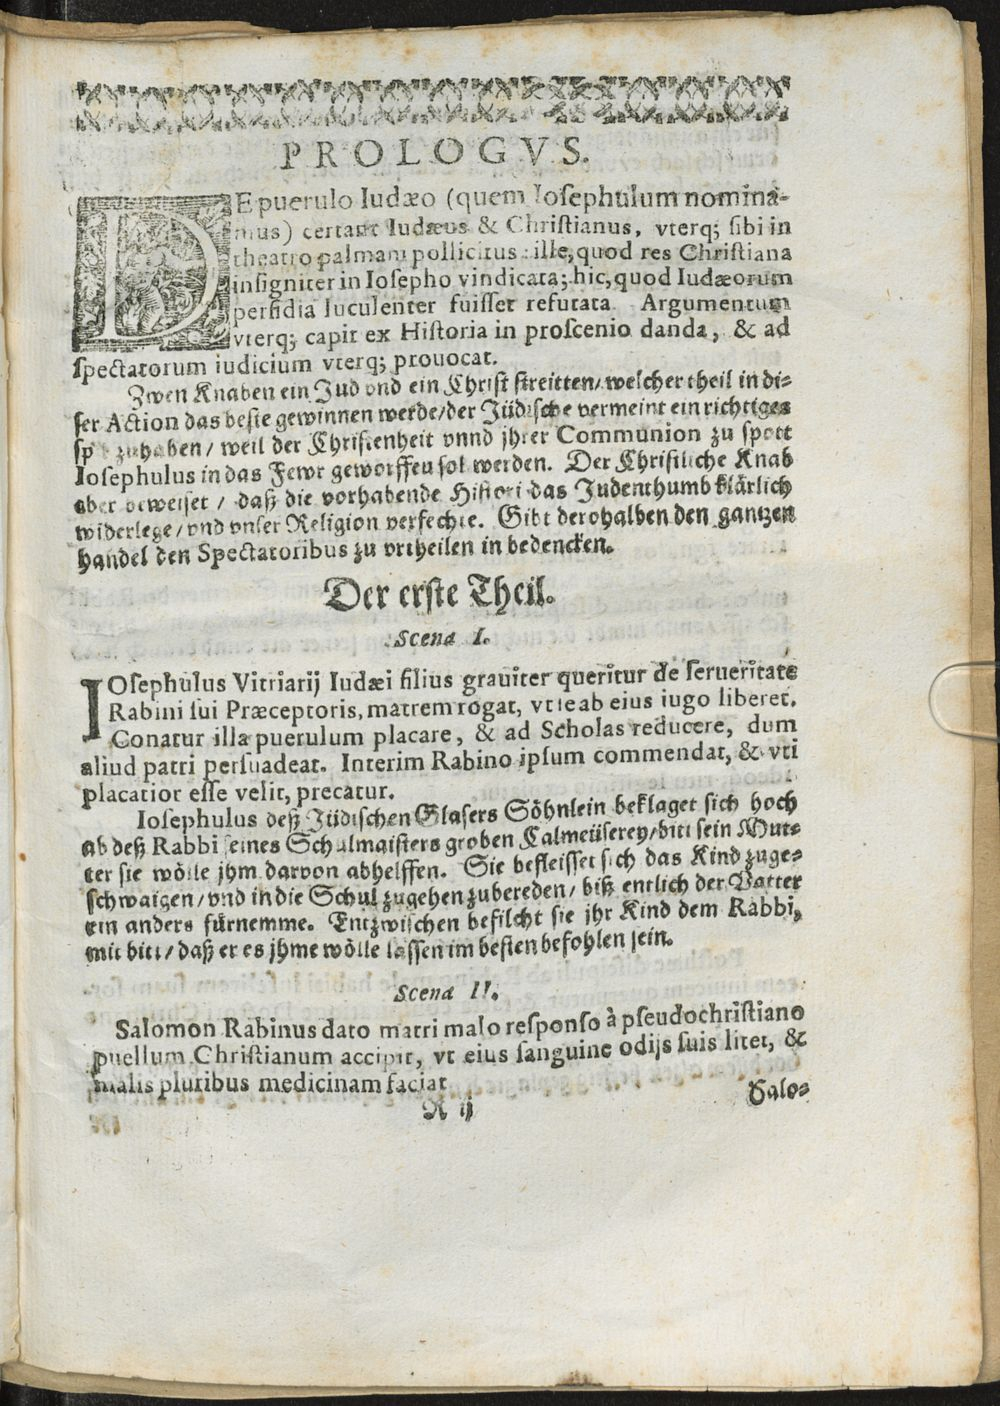 PROLOGVS.
DE puerulo Iudæo (quem Iosephulum nomina-
mus) certant Iudæus & Christianus, vterq; sibi in
theatro palmam pollicitus: ille, quod res Christiana
insigniter in Iosepho vindicata; hic, quod Iudæorum
perfidia luculenter fuisset refutata. Argumentum
vterq; capit ex Historia in proscenio danda, & ad
spectatorum iudicium vterq; prouocat.
Zwen Knaben ein Jud vnd ein Christ streitten/ welcher theil in di-
ser Action das beste gewinnen werde/ der Jüdische vermeint ein richtiges
zuhaben/ weil der Christenheit vnnd jhrer Communion zu spott
Iosephulus in das Fewr geworffen sol werden. Der Christliche Knab
aber beweiset/ daß die vorhabende Histori das Judenthumb klärlich
widerlege/ vnd vnser Religion verfechte. Gibt derohalben den gantzen
handel den Spectatoribus zu vrtheilen in bedencken.
Der erste Theil.
Scena I.
IOsephulus Vitriarij Iudæi filius grauiter queritur de serueritate
Rabini sui Præceptoris, matrem rogat, vt se ab eius iugo liberet.
Conatur illa puerulum placare, & ad Scholas reducere, dum
aliud patri persuadeat. Interim Rabino ipsum commendat, & vti
placatior esse velit, precatur.
Iosephulus deß Jüdischen Glasers Söhnlein beklaget sich hoch
ab deß Rabbi seines Schulmaisters groben Calmeüserey/ bitt sein Mut-
ter sie wölle jhm darvon abhelffen. Sie befleisset sich das Kind zuge-
schwaigen/ vnd in die Schul zugehen zubereden/ biß entlich der Vatter
ein anders fürnemme. Entzwischen befilcht sie jhr Kind dem Rabbi,
mit bitt/ daß er es jhme wölle lassen im besten befohlen sein.
Scena II.
Salomon Rabinus dato matri malo responso à pseudochristiano
puellum Christianum accipit, vt eius sanguine odijs suis litet, &
malis pluribus medicinam faciat
A ij
Salo-